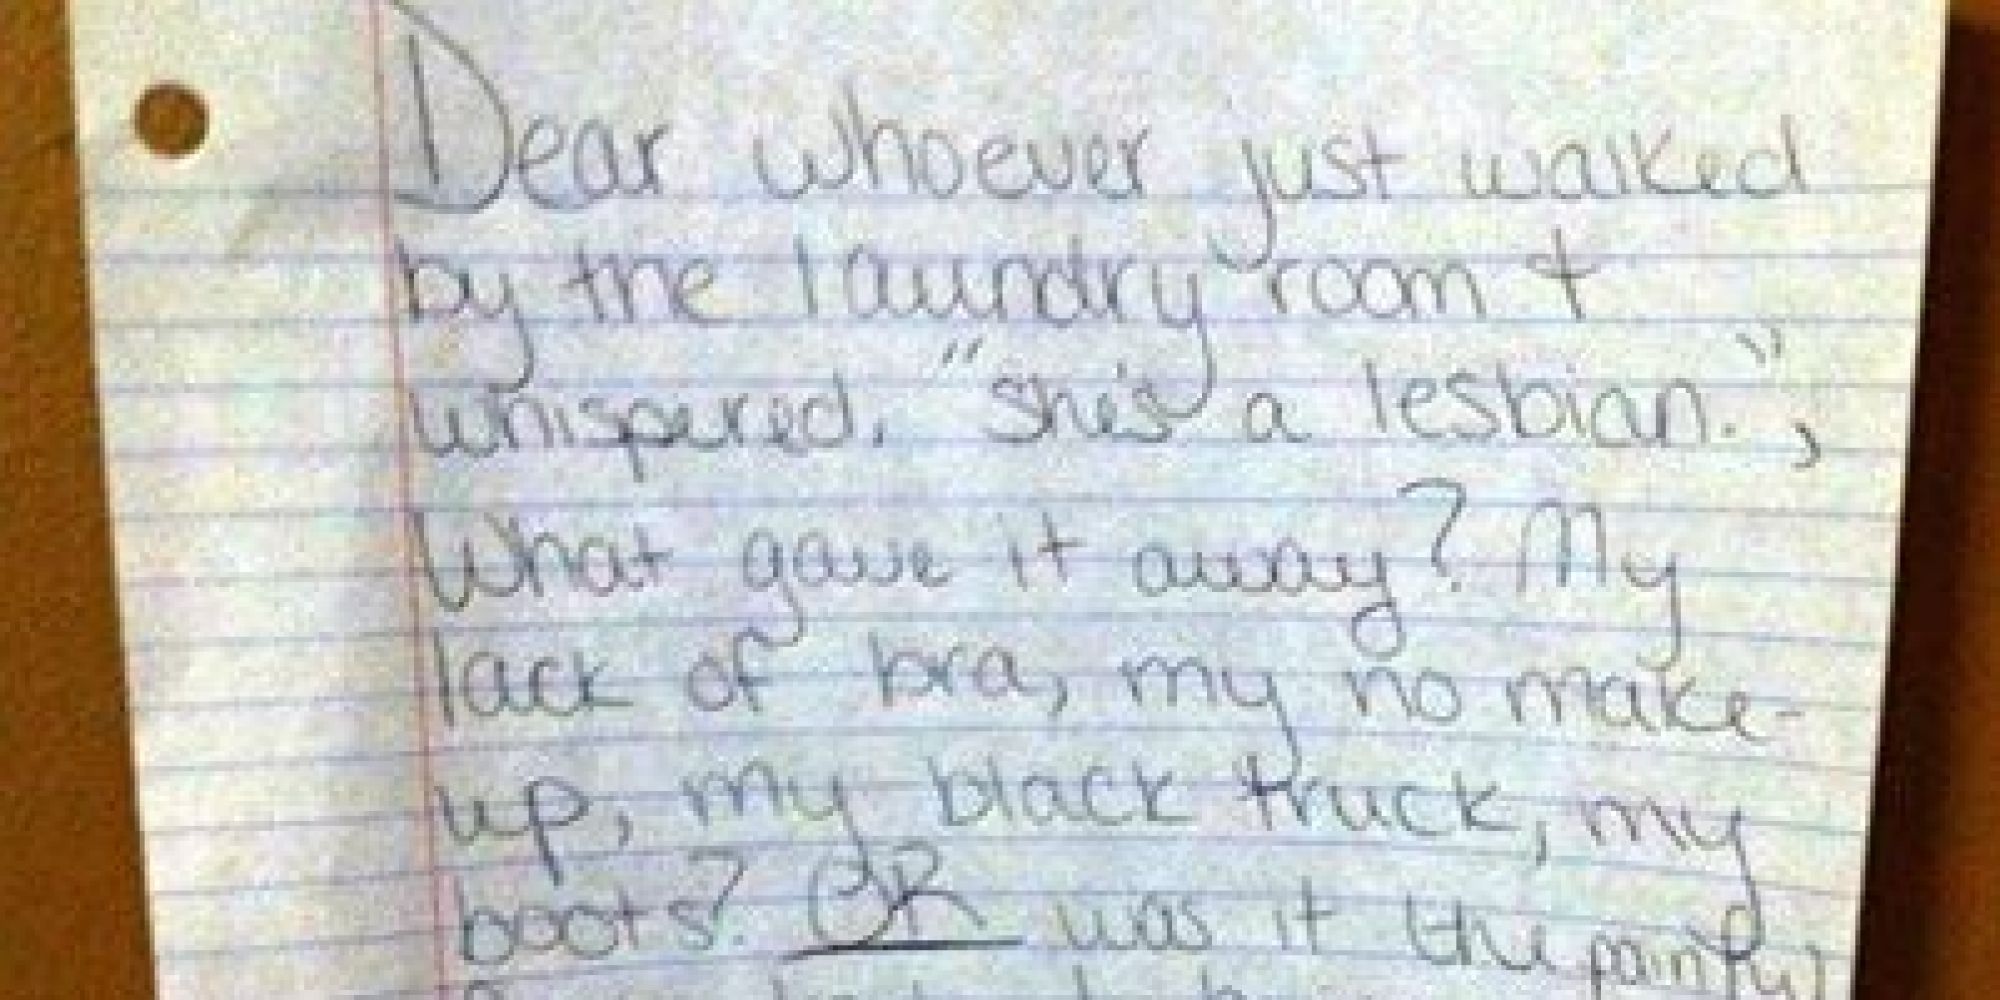 Dear whoever just walked
by the laundry room +
whispered, "she's a lesbian.",
What gave it away? My
lack of bra, my no make-
up, my black truck, my
boots? OR was it the painful